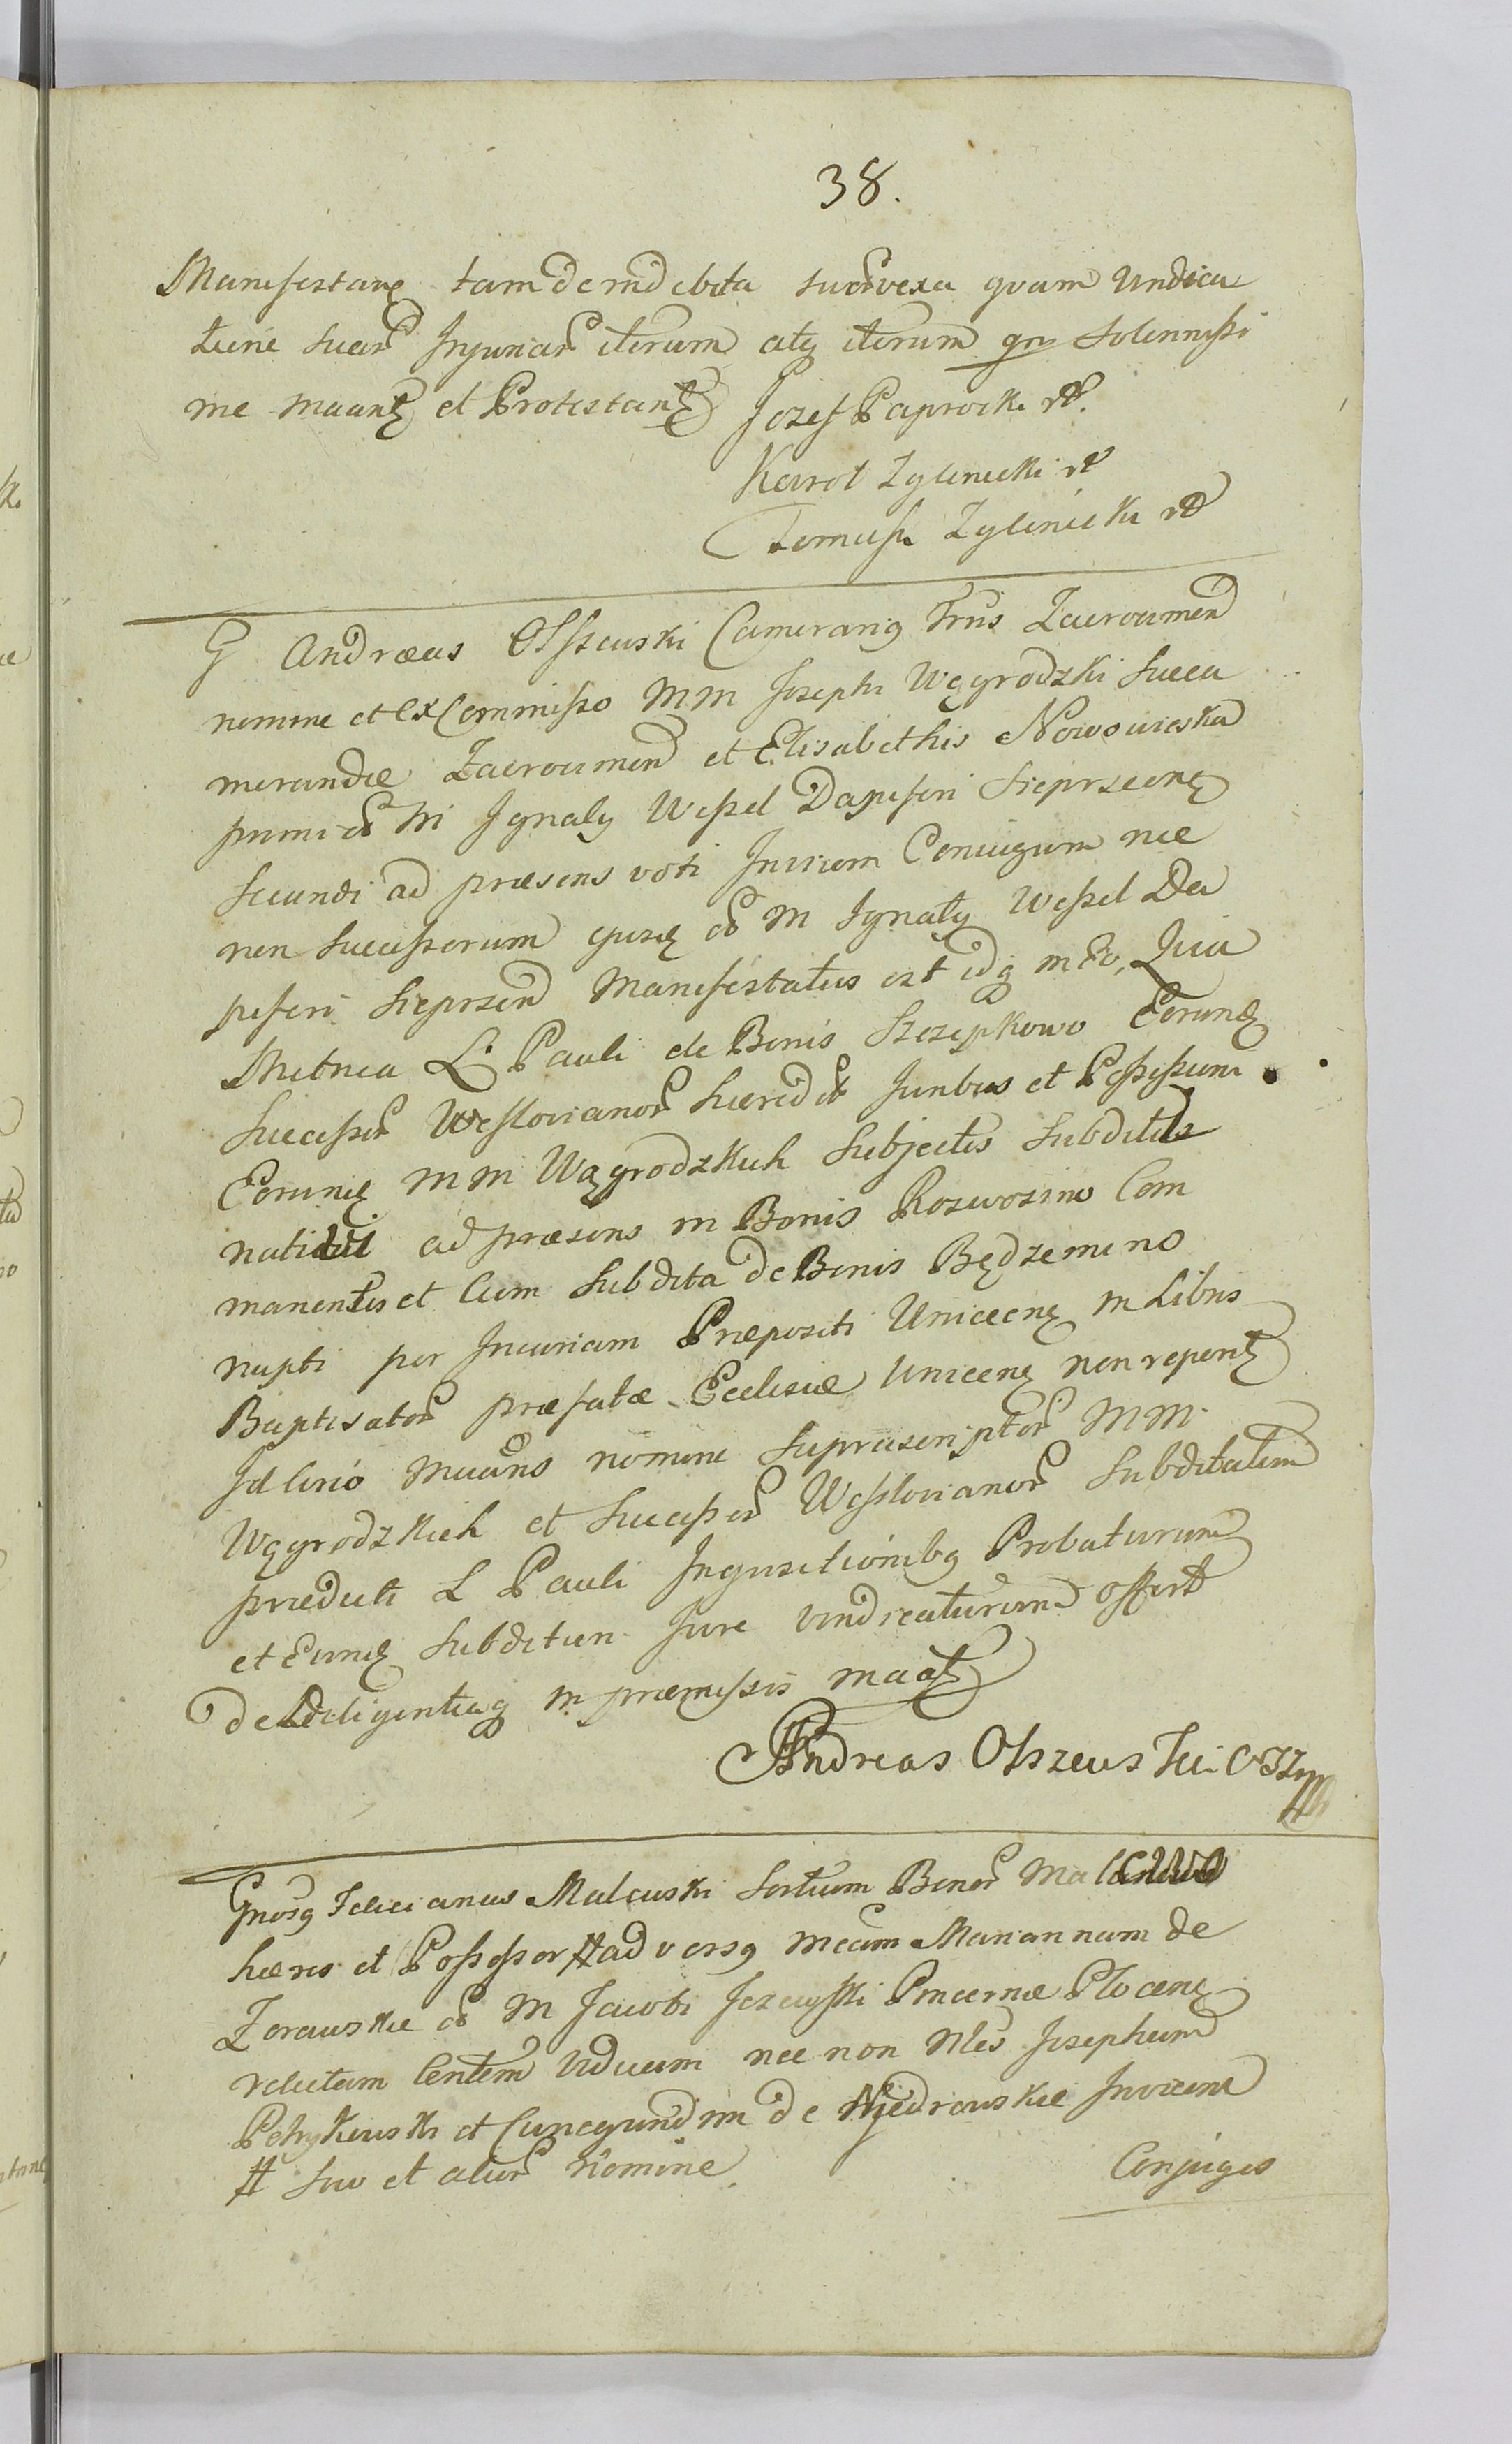 38.
Manifestantę tam de indebita suor̃ vexa quam vindica
tione suar̃ Injuriar̃ iterum atq iterum gn Solennissi
me maantę et Protestantę Jozef Paprocki
Karol Zylinicki
Tomasz Zylinicki
G Andræas Olszewski Camerarig Trrûs Zacroцimen
nomine et ex Commisso MM Josephi Węgrodzki Succa
merundæ Zacroeimen et Elisabethis Nowowieska
primi õ M Ignaty Wessel Dapiferi Sieprscenę
secundi ad præsens voti Invicem Coniugum nec
non Successorum ejusę õ M Ignaty Wessel Da
piferi Sieprsen Manifestatus est idq in Eo, Quia
Metrica L Pauli de Bonis Szczypkowo Eorundę
Successor̃ Weslovianor̃ hæredit Juribus et Possessioni
Eorundę MM Węgrodzkich Subjectis Subditi
nati ad præsens in Bonis Roswozino Com
manentis et Cum Subdita de Bonis Będzemino
nupti per Incuriam Præpositi Uniecenę in Libris
Baptisator̃ præfatæ Ecclesiæ Uniecenę non reperitę
Id circo maans nomine suprascriptor̃ MM
Węgrodzkich et Successor̃ Weslovianor̃ Subditatem
prædicti L Pauli Inquisitionibg Probaturum
et Eundę Subditum Jure vindicaturum offert
de Diligentiaq in præmissis maatę
Andreas Olszewski CZ
Gnosg Felicianus Malewski Sortium Bonor̃ Malewo
hæres et Possessor # adversg Mcam Mariannam de
Zorawskie õ M Jacobi Jezewski Pincernæ Plocenę
relictam Consortem Viduam nec non Nles Josephum
Petrykowski et Cunegundim de Niedrowskie Invicem
# suo et alior̃ nomine
Conjuges